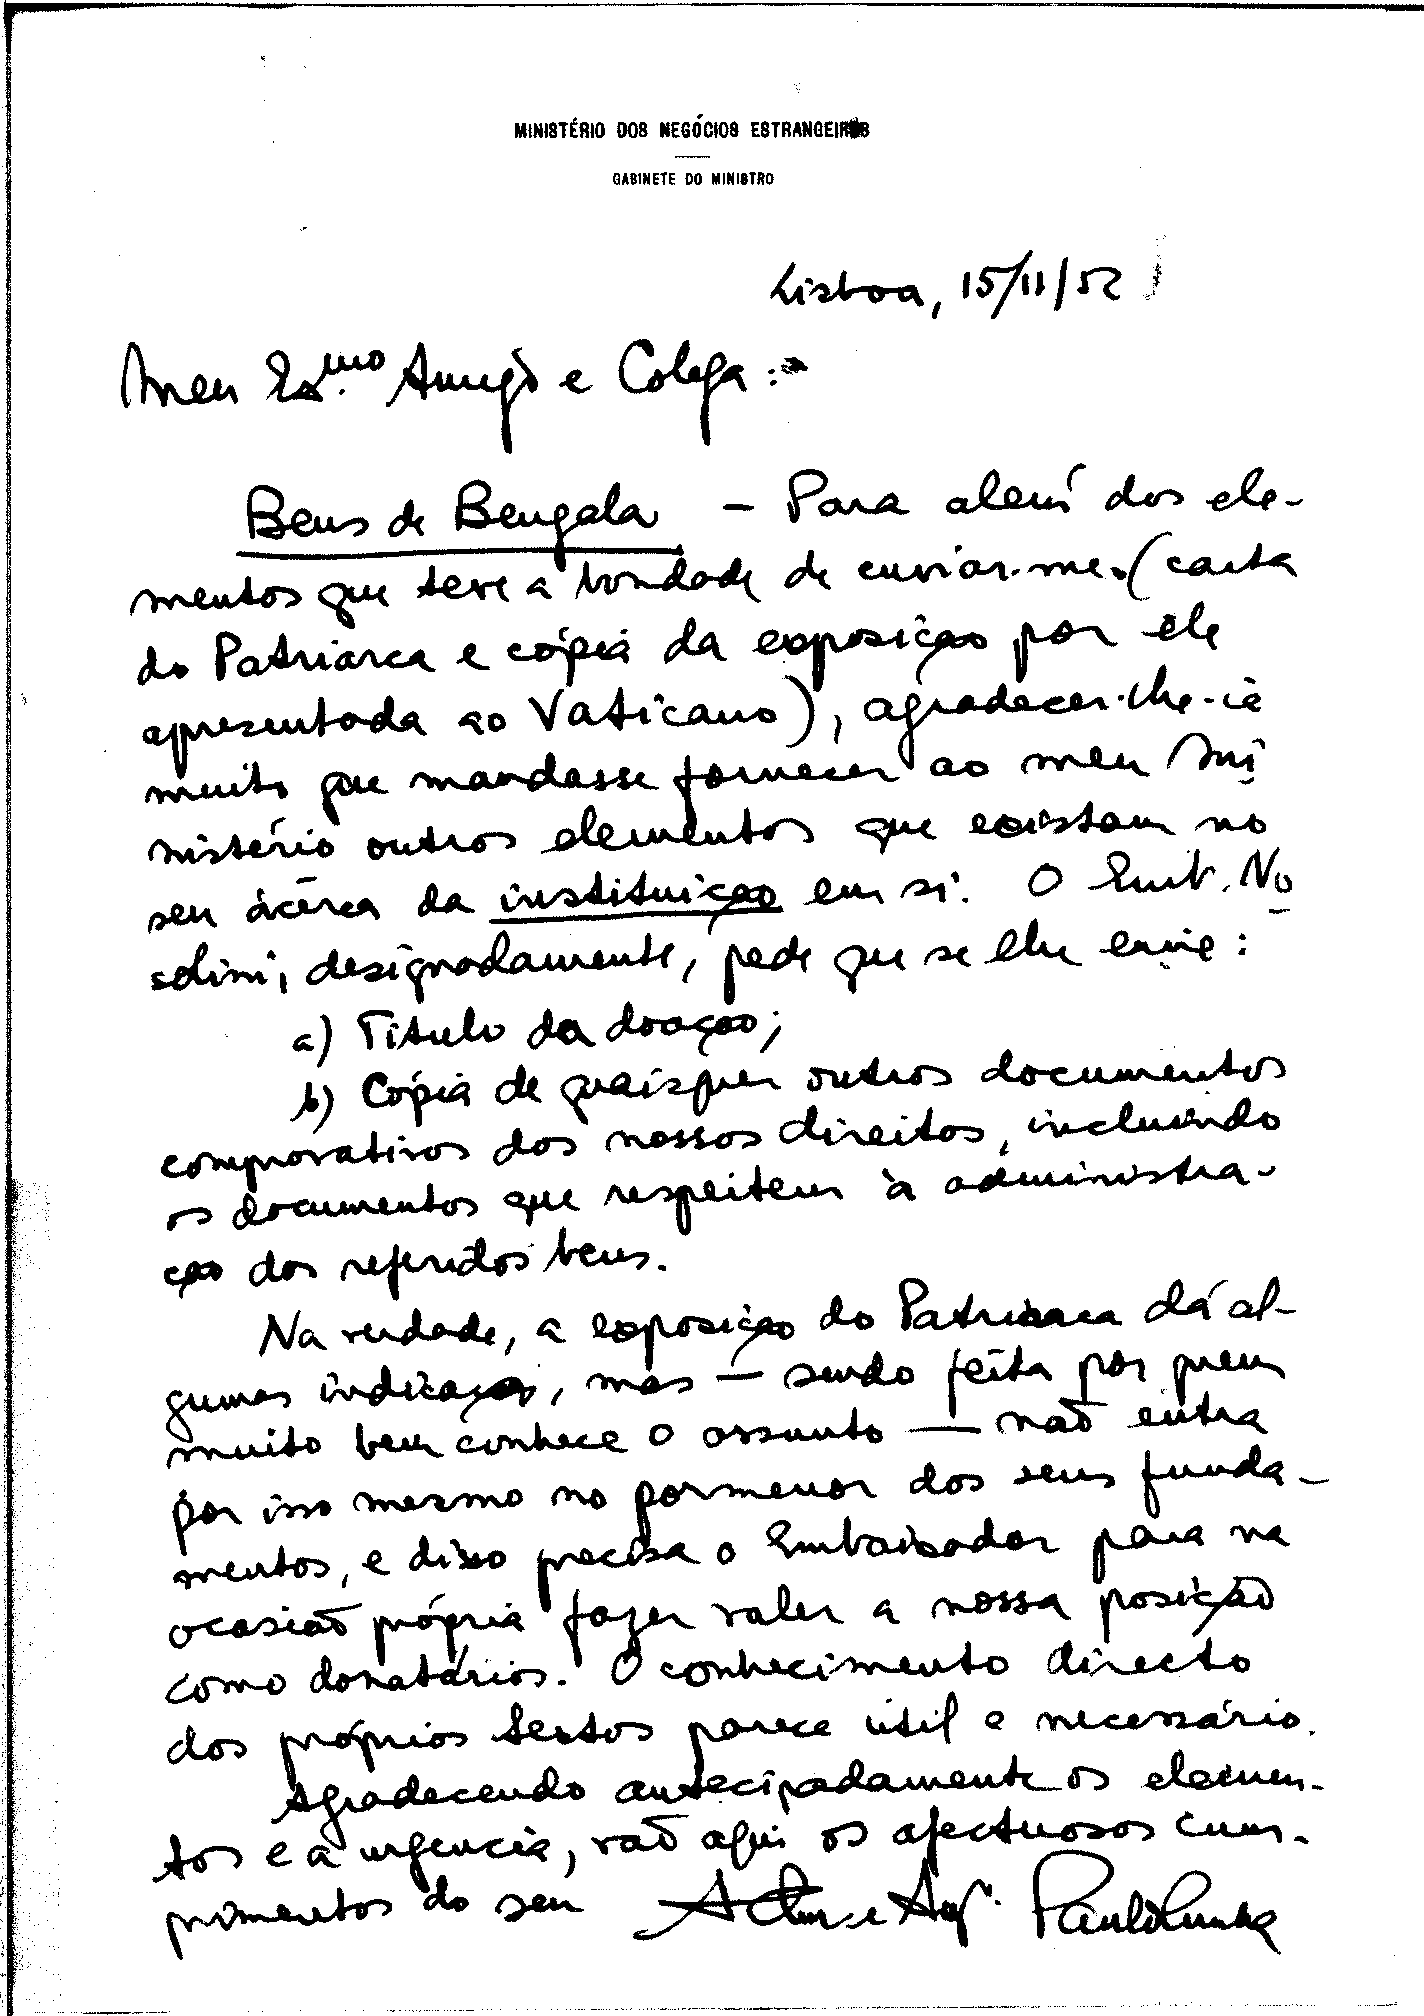 MINISTÉRIO DOS NEGÓCIOS ESTRANGEIROS
GABINETE DO MINISTRO
Lisboa, 15/11/52
Meu Ex.mo Amigo e Colega:
Bens de Bengala — Para além dos ele-
mentos que teve a bondade de enviar-me (carta
do Patriarca e cópia da exposição por êle
apresentada ao Vaticano), agradecer-lhe-ia
muito que mandasse fornecer ao meu Mi
nistério outros elementos que existam no
seu àcêrca da instituição em si. O Emb. No
solini, designadamente, pede que se lhe envie:
a) Título da doação;
b) Cópia de quaisquer outros documentos
comprovativos dos nossos direitos, incluindo
os documentos que respeitem à administra-
ção dos referidos bens.
Na verdade, a exposição do Patriarca dá al-
gumas indicações, mas — sendo feita por quem
muito bem conhece o assunto — não entra
por isso mesmo no pormenor dos seus funda-
mentos, e disso precisa o Embaixador para na
ocasião própria fazer valer a nossa posição
como donatários. O conhecimento directo
dos próprios textos parece útil e necessário.
Agradecendo antecipadamente os elemen-
tos e a urgência, vão aqui os afectuosos cum-
primentos do seu Paulo Cunha